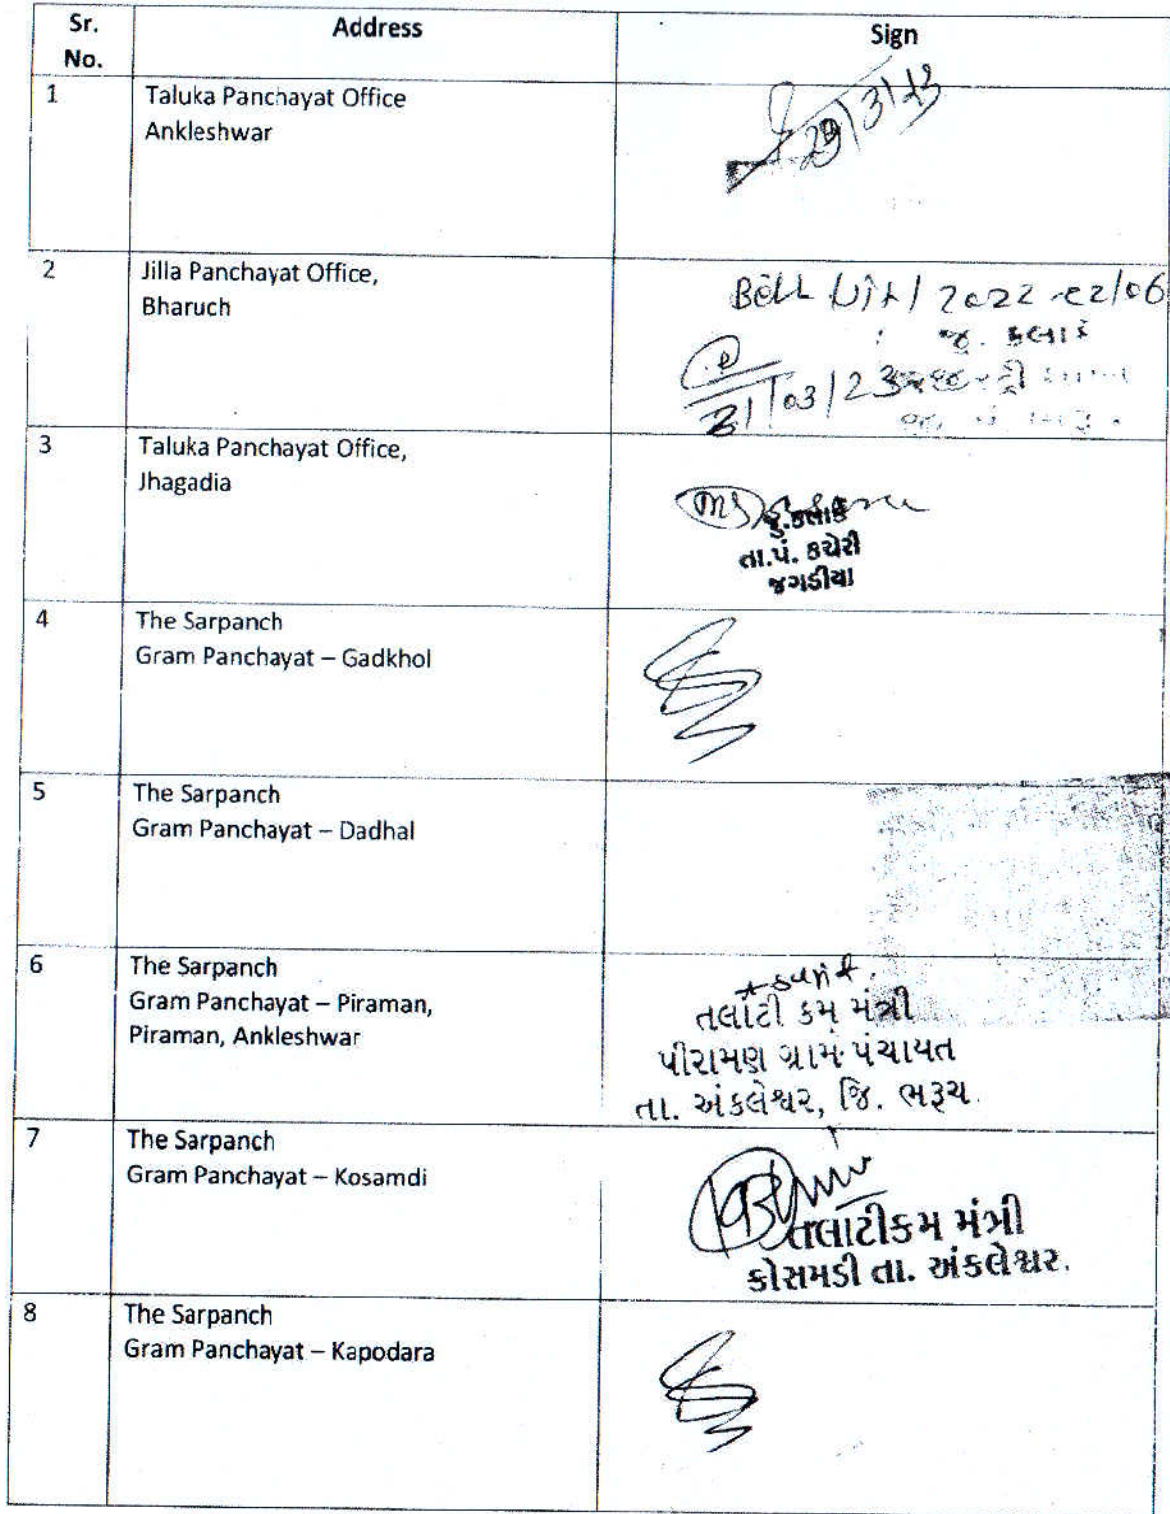 Sr. No.
Address
Sign
1
Taluka Panchayat Office
Ankleshwar
29/3/23
2
Jilla Panchayat Office,
Bharuch
/2022-22/06
જુ. કલાર્ક
21/03/23
3
Taluka Panchayat Office,
Jhagadia
જુ.કલાર્ક
તા.પં. કચેરી
જગડીયા
4
The Sarpanch
Gram Panchayat – Gadkhol
5
The Sarpanch
Gram Panchayat – Dadhal
6
The Sarpanch
Gram Panchayat – Piraman,
Piraman, Ankleshwar
તલાટી કમ મંત્રી
પીરામણ ગ્રામ પંચાયત
તા. અંકલેશ્વર, જિ. ભરૂચ.
7
The Sarpanch
Gram Panchayat – Kosamdi
તલાટીકમ મંત્રી
કોસમડી તા. અંકલેશ્વર.
8
The Sarpanch
Gram Panchayat – Kapodara